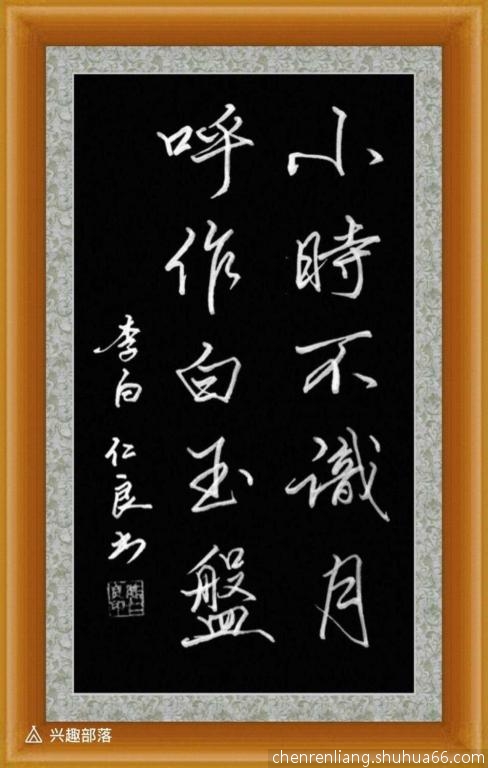 小時不識月
呼作白玉盤
李白 仁良书
陈仁良印
兴趣部落
chenrenliang.shuhua66.com